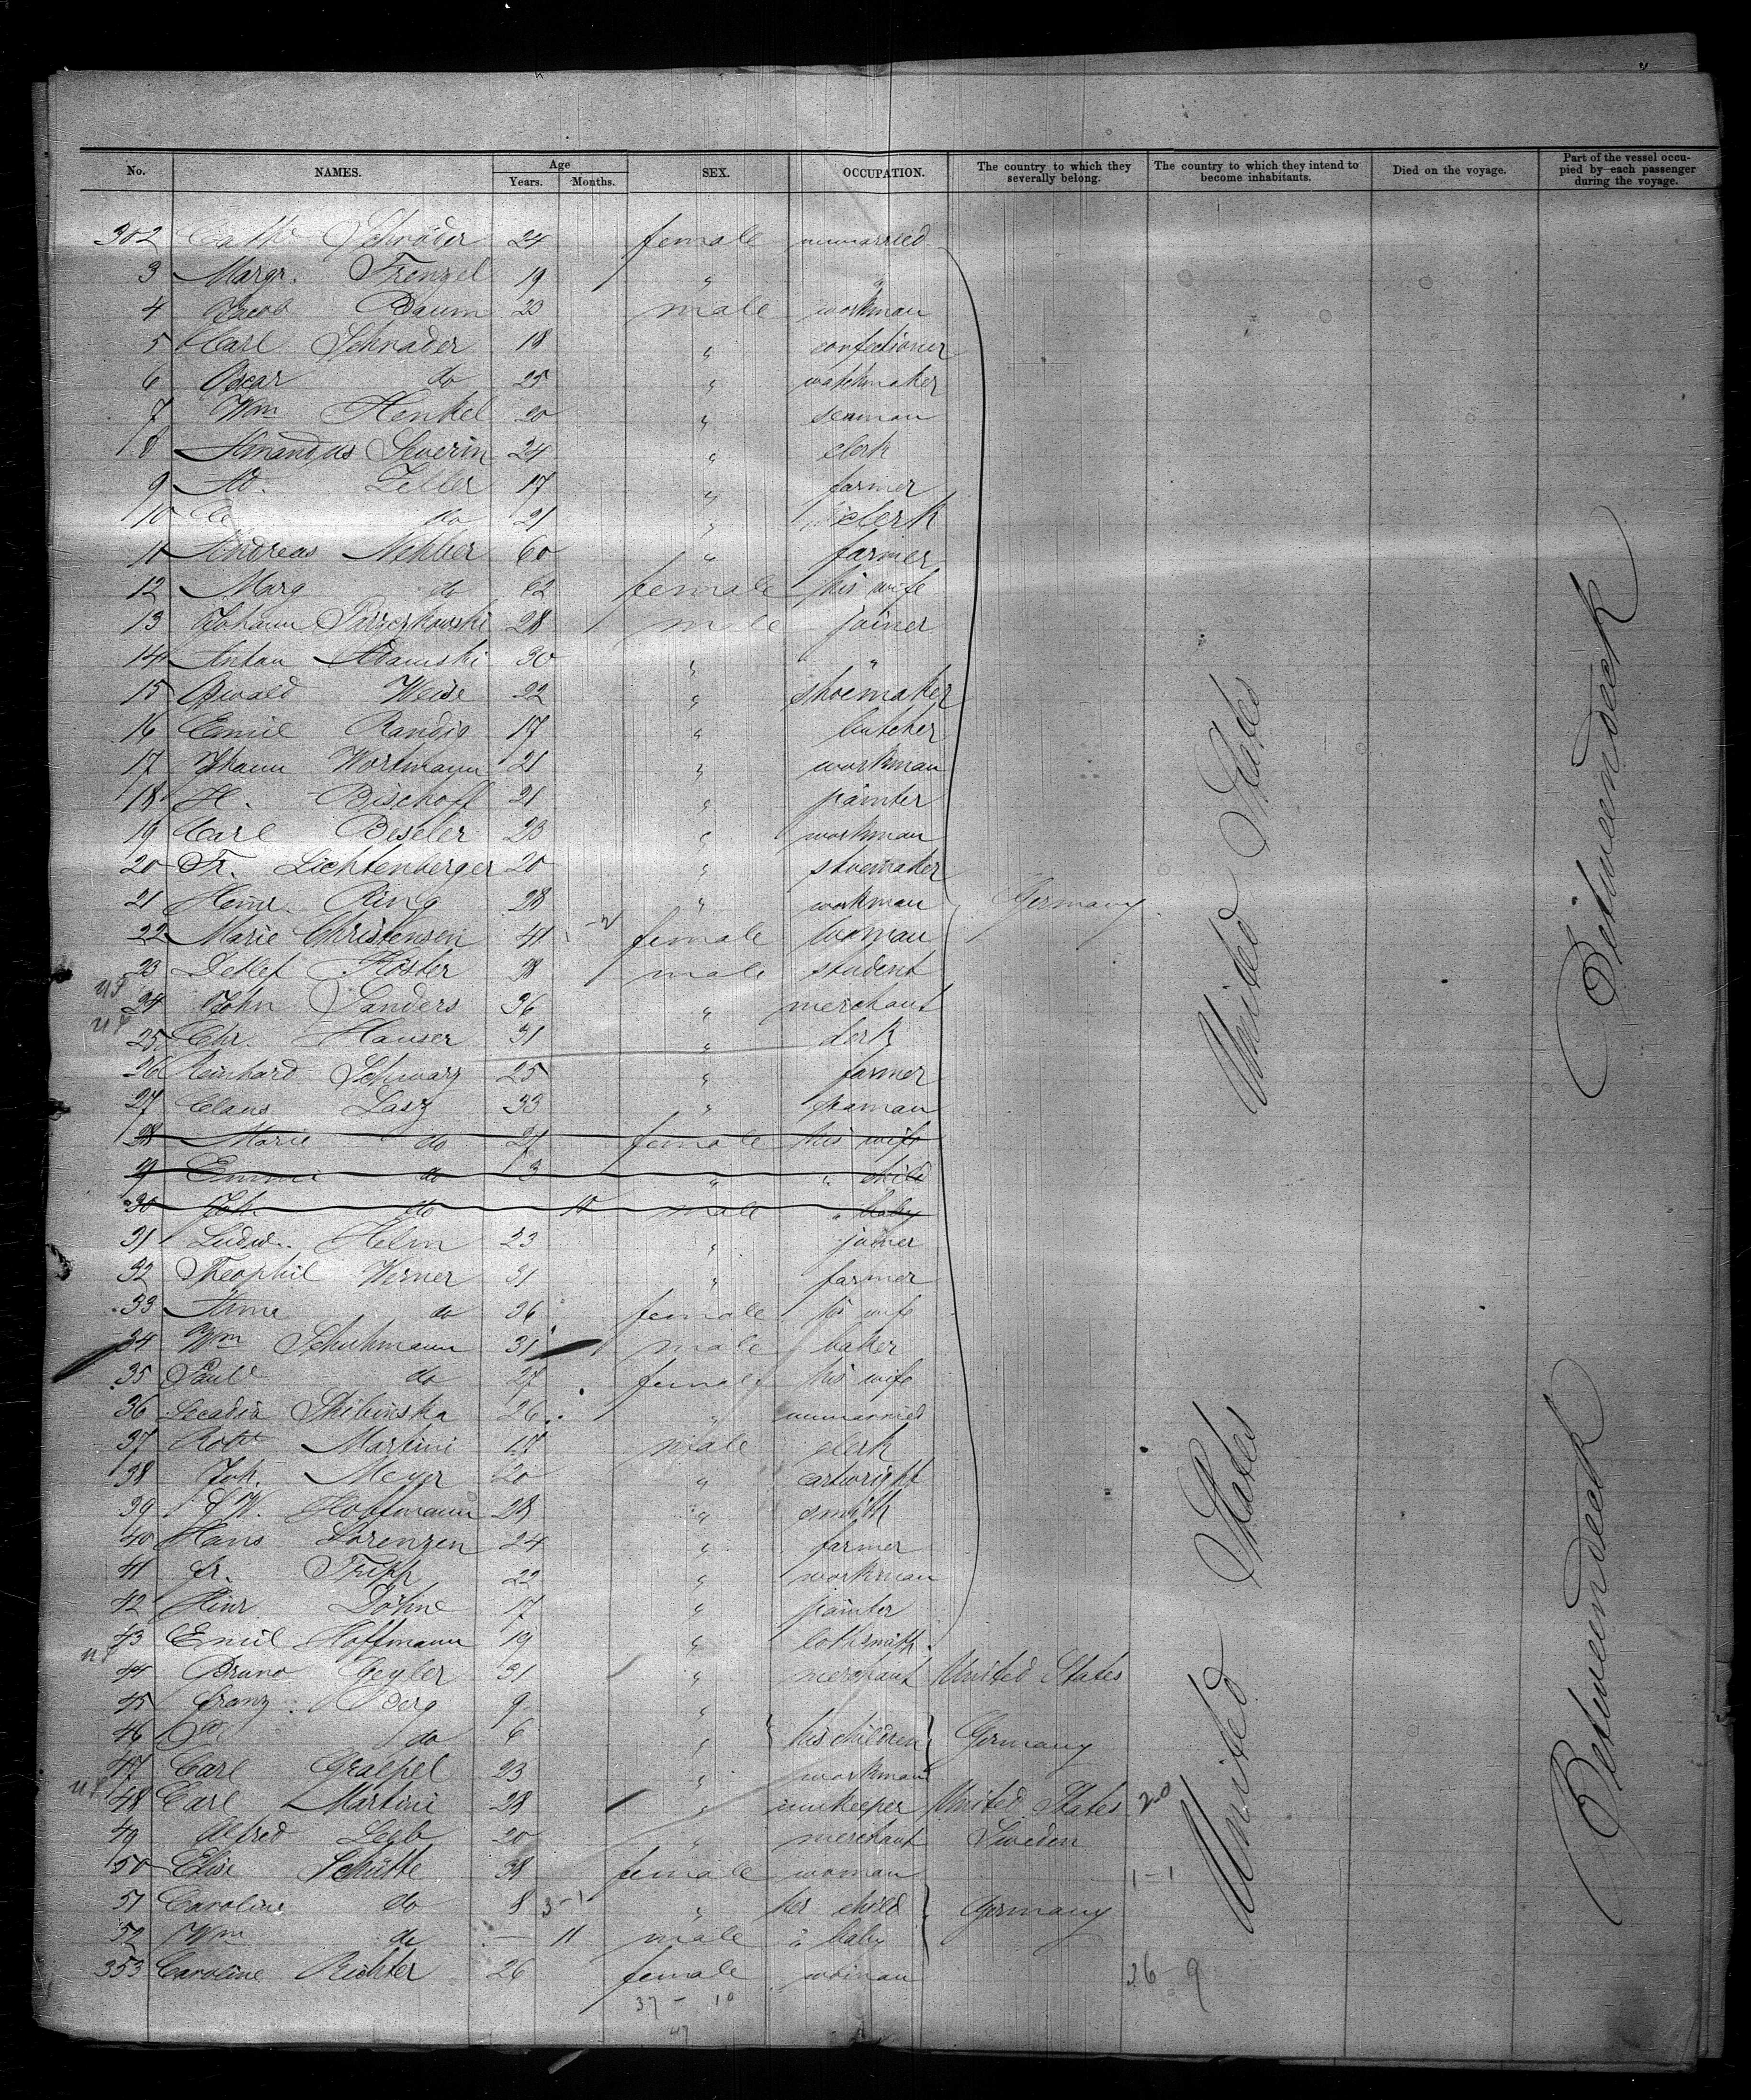 No. NAMES. Age Years. Months. SEX. OCCUPATION. The country to which they severally belong. The country to which they intend to become inhabitants. Died on the voyage. Part of the vessel occupied by each passenger during the voyage.
302 Cath Schröder 24 female unmarried
3 Margr. Frenzel 19 " "
4 Jacob Baum 20 male workman
5 Carl Schrader 18 " confectioner
6 Oscar do 25 " watchmaker
7 Wm Henkel 20 " seaman
8 Amandus Severin 24 " clerk
9 Ad. Zeller 17 " farmer
10 C do 21 " clerk
11 Andreas 60 " farmer
12 Marg do 62 female his wife
13 Johann 28 male joiner
14 Anton Adamski 30 " "
15 Oswald Weise 22 " shoemaker
16 Emil 17 " butcher
17 Johann Wortmann 21 " workman
18 H. Bischoff 21 " painter
19 Carl Beseler 23 " workman
20 Fr. Lichtenberger 20 " shoemaker
21 Heinr. Ring 28 " workman Germany
22 Marie Christensen 41 female woman
23 Detlef Köster 28 male student
24 John Sanders 36 " merchant
25 Chr. Hauser 31 " clerk
26 Reinhard Schwarz 25 " farmer
27 Claus Lasz 33 " seaman
28 Marie do 27 female his wife
29 Emmi do 3 " " child
30 Joh. do 10 male " baby
31 Ludw. Helm 23 " joiner
32 Theophil Werner 31 " farmer
33 Anna do 36 female his wife
34 Wm Schuhmann 31 male baker
35 Paul do 27 female his wife
36 Lecadia Skibinska 26 " unmarried
37 Robt Martini 17 male clerk
38 Joh. Meyer 20 " cartwright
39 W. Hoffmann 28 " smith
40 Hans Lorenzen 24 " farmer
41 Fr. 22 " workman
42 Hinr Döhne 17 " painter
43 Emil Hoffmann 19 " lothsmith
44 Bruno 31 " merchant United States
45 Franz Berg 9 "
46 do 6 " his children Germany
47 Carl Graepel 23 " workman
48 Carl Martini 28 " innkeeper United States
49 Alfred 20 " merchant Sweden
50 Elise Schütte 38 female woman 1-1
51 Caroline do 8 3-1 " her child Germany
52 Wm do - 11 male " baby
353 Caroline Richter 26 female woman 26-9
37 - 10
47
United States
United States
Betweendeck
Betweendeck